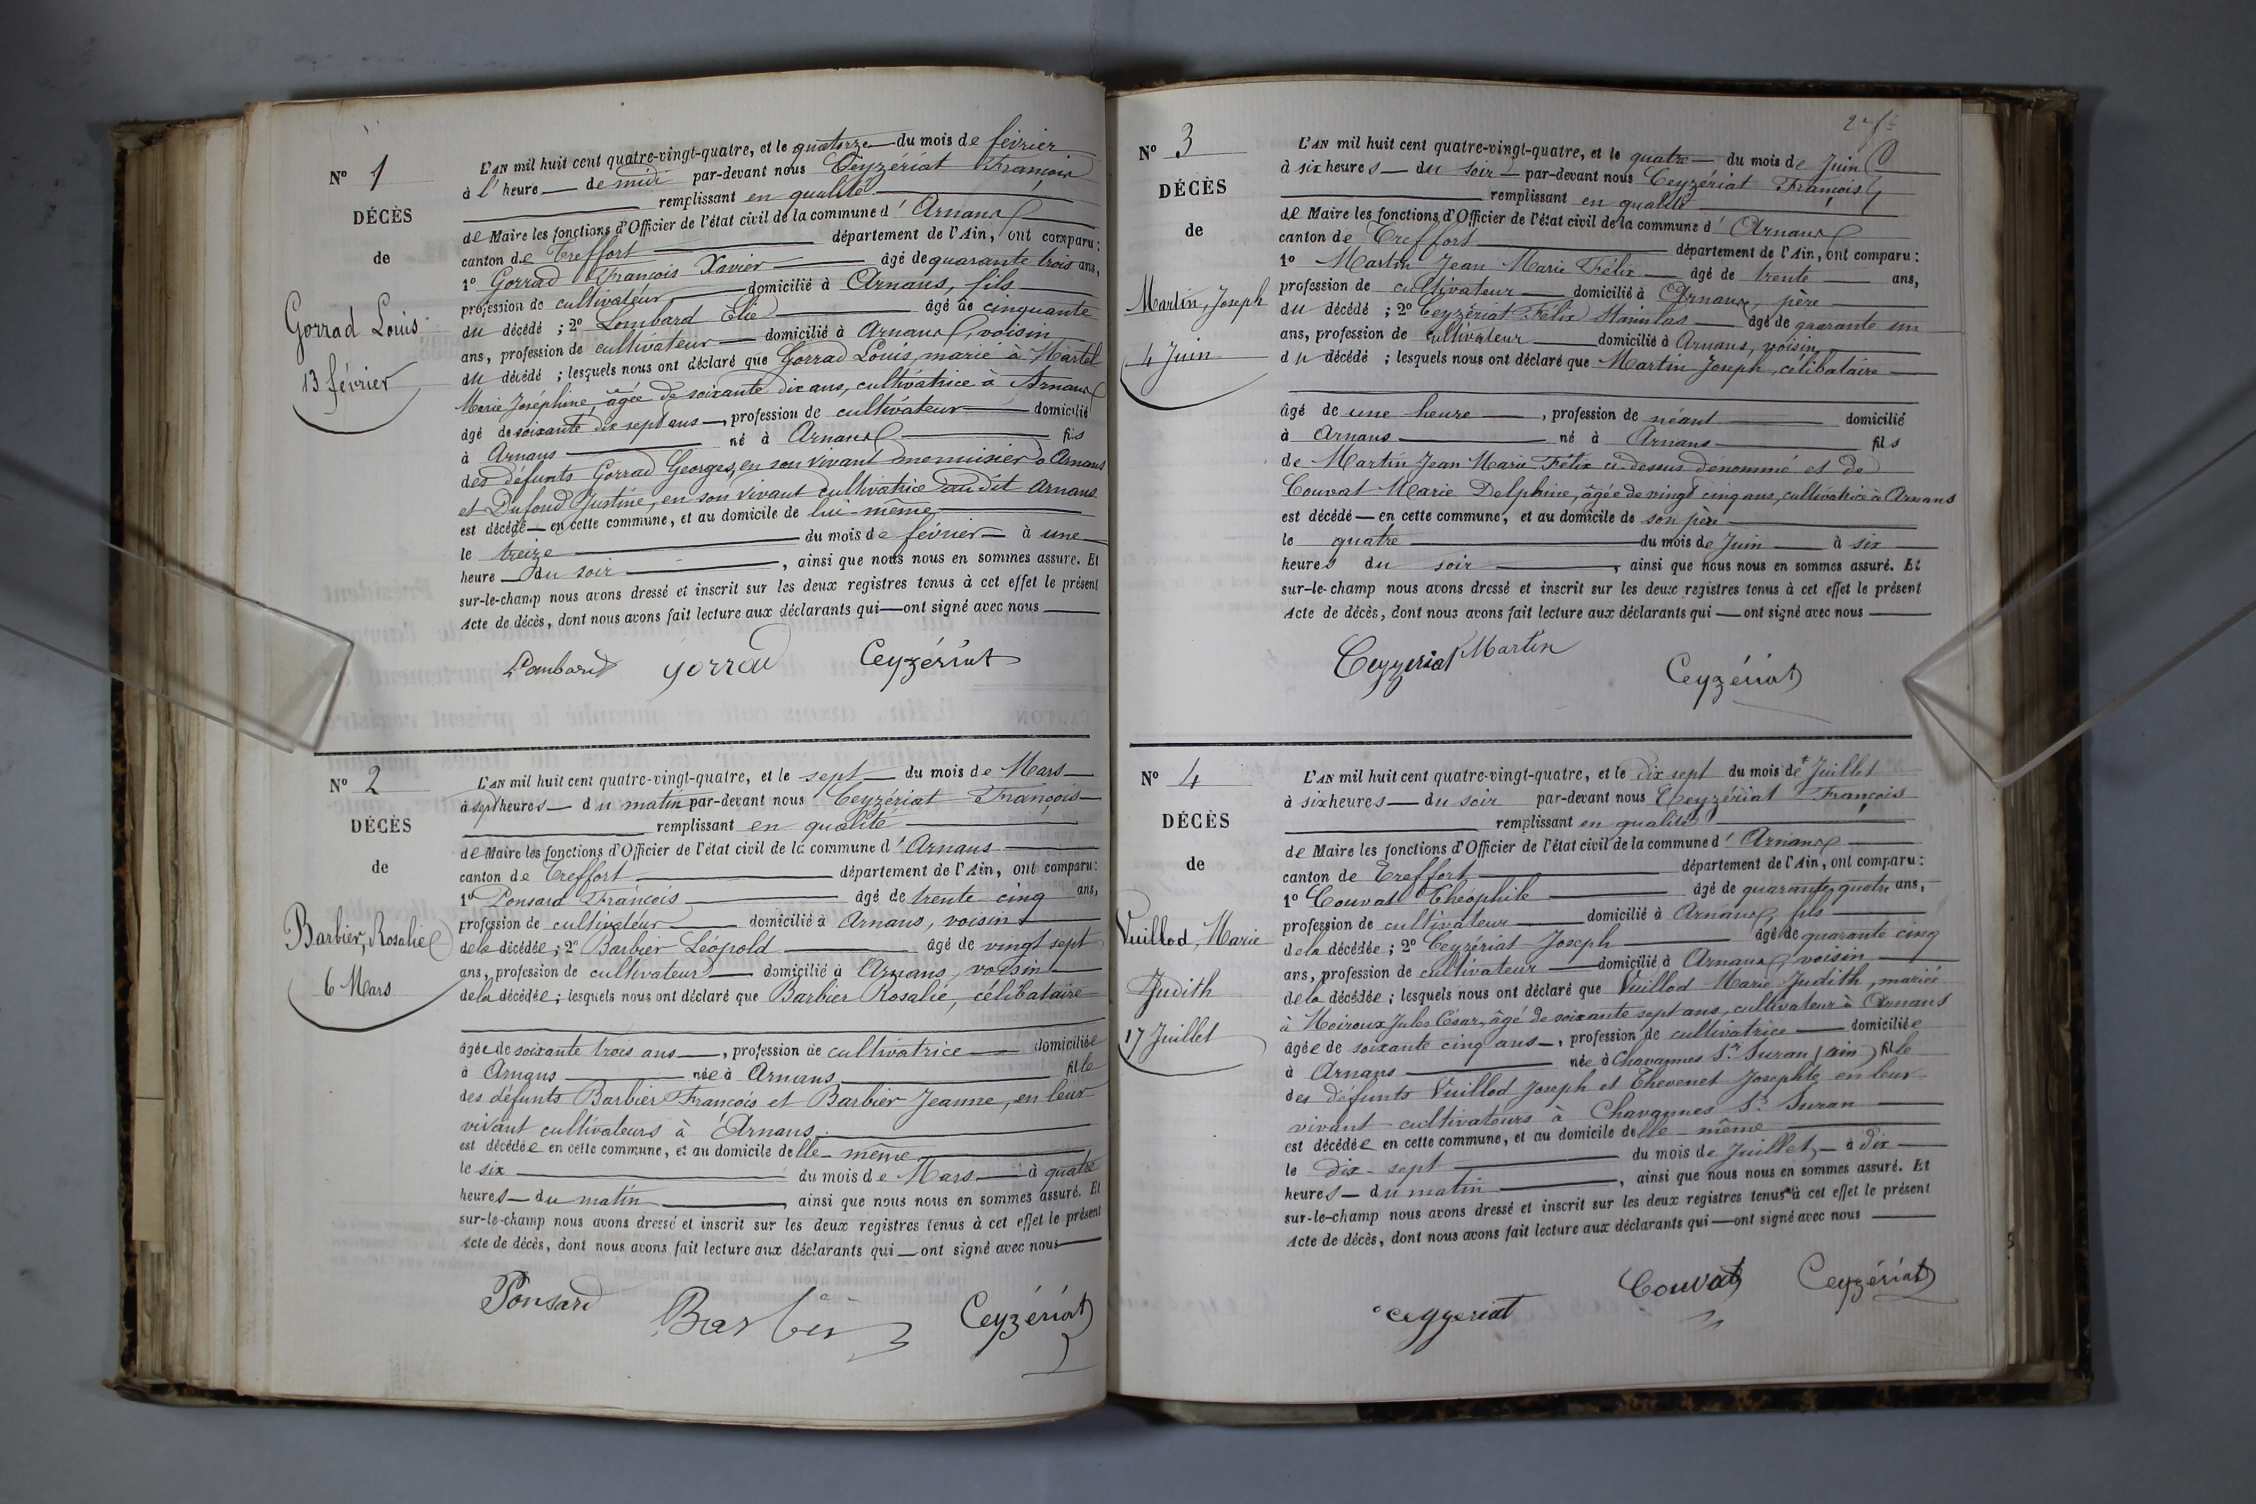 N° 1
DÉCÈS
de
Gorrad Louis
13 février
L'AN mil huit cent quatre-vingt-quatre, et le quatorze du mois de février
à l'heure de midi par-devant nous Ceyzériat François
remplissant en qualité
de Maire les fonctions d'Officier de l'état civil de la commune d'Arnans
canton de Treffort département de l'Ain, ont comparu :
1° Gorrad François Xavier âgé de quarante trois ans,
profession de cultivateur domicilié à Arnans, fils
du décédé ; 2° Lombard Elie âgé de cinquante
ans, profession de cultivateur domicilié à Arnans, voisin
du décédé ; lesquels nous ont déclaré que Gorrad Louis, marié à Martel
Marie Joséphine, âgée de soixante dix ans, cultivatrice à Arnans
âgé de soixante dix sept ans, profession de cultivateur domicilié
à Arnans né à Arnans fils
des défunts Gorrad Georges, en son vivant menuisier à Arnans
et Dufoud Justine, en son vivant cultivatrice audit Arnans
est décédé en cette commune, et au domicile de lui-même
le treize du mois de février à une
heure du soir, ainsi que nous nous en sommes assuré. Et
sur-le-champ nous avons dressé et inscrit sur les deux registres tenus à cet effet le présent
Acte de décès, dont nous avons fait lecture aux déclarants qui ont signé avec nous
Lombard gorrad Ceyzériat
N° 2
DÉCÈS
de
Barbier, Rosalie
6 Mars
L'AN mil huit cent quatre-vingt-quatre, et le sept du mois de Mars
à sept heures du matin par-devant nous Ceyzériat François
remplissant en qualité
de Maire les fonctions d'Officier de l'état civil de la commune d'Arnans
canton de Treffort département de l'Ain, ont comparu :
1° Ponsard François âgé de trente cinq ans,
profession de cultivateur domicilié à Arnans, voisin
de la décédée ; 2° Barbier Léopold âgé de vingt sept
ans, profession de cultivateur domicilié à Arnans, voisin
de la décédée ; lesquels nous ont déclaré que Barbier Rosalie, célibataire
âgée de soixante trois ans, profession de cultivatrice domiciliée
à Arnans née à Arnans fille
des défunts Barbier François et Barbier Jeanne, en leur
vivant cultivateurs à Arnans
est décédée en cette commune, et au domicile d'elle-même
le six du mois de Mars à quatre
heures du matin, ainsi que nous nous en sommes assuré. Et
sur-le-champ nous avons dressé et inscrit sur les deux registres tenus à cet effet le présent
Acte de décès, dont nous avons fait lecture aux déclarants qui ont signé avec nous
Ponsard Barbier Ceyzériat
N° 3
DÉCÈS
de
Martin, Joseph
4 Juin
L'AN mil huit cent quatre-vingt-quatre, et le quatre du mois de Juin
à six heures du soir par-devant nous Ceyzériat François
remplissant en qualité
de Maire les fonctions d'Officier de l'état civil de la commune d'Arnans
canton de Treffort département de l'Ain, ont comparu :
1° Martin Jean Marie Félix âgé de trente ans,
profession de cultivateur domicilié à Arnans, père
du décédé ; 2° Ceyzériat Félix Stanislas âgé de quarante un
ans, profession de cultivateur domicilié à Arnans, voisin
du décédé ; lesquels nous ont déclaré que Martin Joseph, célibataire
âgé de une heure, profession de néant domicilié
à Arnans né à Arnans fils
de Martin Jean Marie Félix ci-dessus dénommé et de
Couvat Marie Delphine, âgée de vingt cinq ans, cultivatrice à Arnans
est décédé en cette commune, et au domicile de son père
le quatre du mois de Juin à six
heures du soir, ainsi que nous nous en sommes assuré. Et
sur-le-champ nous avons dressé et inscrit sur les deux registres tenus à cet effet le présent
Acte de décès, dont nous avons fait lecture aux déclarants qui ont signé avec nous
Ceyzeriat Martin Ceyzériat
N° 4
DÉCÈS
de
Vuillod, Marie
Judith
17 Juillet
L'AN mil huit cent quatre-vingt-quatre, et le dix sept du mois de Juillet
à six heures du soir par-devant nous Ceyzériat François
remplissant en qualité
de Maire les fonctions d'Officier de l'état civil de la commune d'Arnans
canton de Treffort département de l'Ain, ont comparu :
1° Couvat Théophile âgé de quarante quatre ans,
profession de cultivateur domicilié à Arnans, fils
de la décédée ; 2° Ceyzériat Joseph âgé de quarante cinq
ans, profession de cultivateur domicilié à Arnans, voisin
de la décédée ; lesquels nous ont déclaré que Vuillod Marie Judith, mariée
à Moiroux Jules César, âgé de soixante sept ans, cultivateur à Arnans
âgée de soixante cinq ans, profession de cultivatrice domiciliée
à Arnans née à Chavannes Sr Suran (ain) fille
des défunts Vuillod Joseph et Thevenet Josephte en leur
vivant cultivateurs à Chavannes Sr Suran
est décédée en cette commune, et au domicile d'elle-même
le dix-sept du mois de Juillet, à dix
heures du matin, ainsi que nous nous en sommes assuré. Et
sur-le-champ nous avons dressé et inscrit sur les deux registres tenus à cet effet le présent
Acte de décès, dont nous avons fait lecture aux déclarants qui ont signé avec nous
ceyzeriat Couvat Ceyzériat